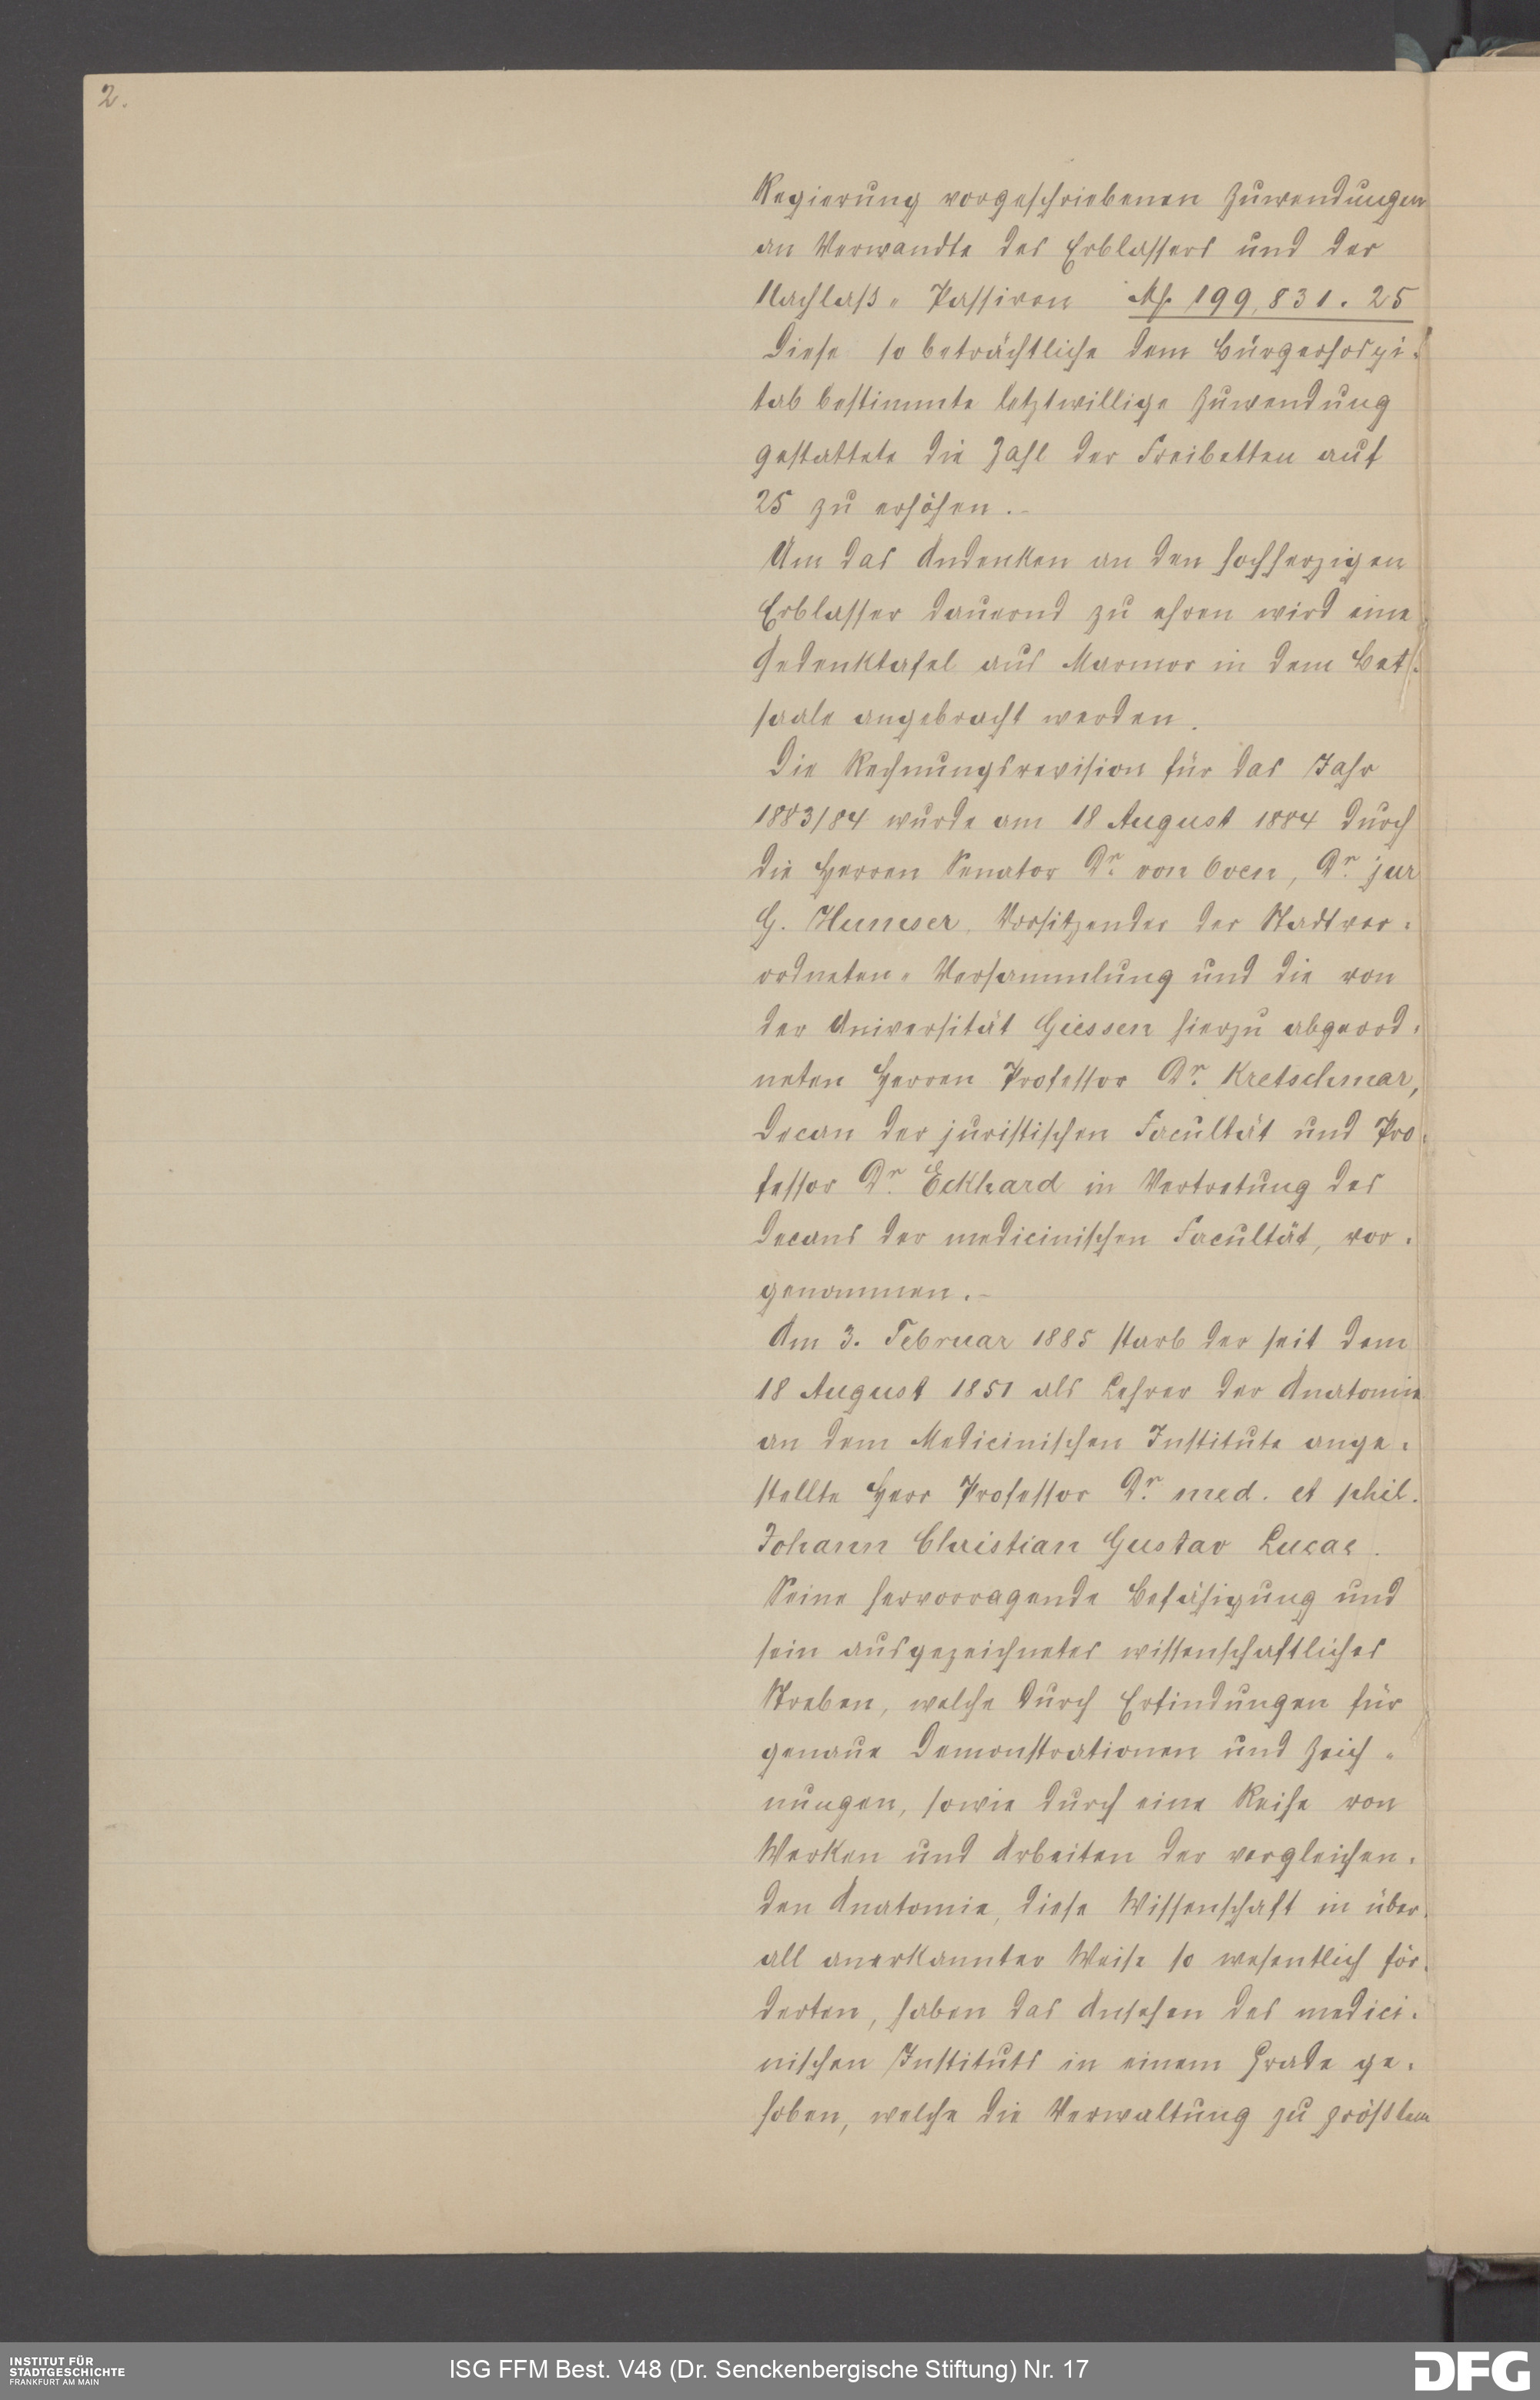 2.
Regierung vorgeschriebenen Zuwendungen
an Verwandte des Erblassers und der
Nachlaß- Passiven M. 199,831.25
Diese so beträchtliche dem Bürgerhospi-
tab bestimmte letztwillige Zuwendung
gestattete die Zahl der Freibetten auf
25 zu erhöhen.-
Um das Andenken an den hochherzigen
Erblasser dauernd zu ehren wird eine
Gedenktafel aus Marmor in dem Bet-
saale angebracht werden.
Die Rechnungsrevision für das Jahr
1883/84 wurde am 18 August 1884 durch
die Herren Senator Dr. von Oven, Dr. jur
G. Humser, Vorsitzender der Stadtver-
ordneten- Versammlung und die von
der Universität Giessen hierzu abgeord-
neten Herren Professor Dr. Kretschmar,
Decan der juristischen Facultät und Pro-
fessor Dr. Eckhard in Vertretung des
Decans der medicinischen Facultät, vor-
genommen.-
Am 3. Februar 1885 starb der seit dem
18 August 1851 als Lehrer der Anatomie
an dem Medicinischen Institute ange-
stellte Herr Professor Dr. med. et phil.
Johann Christian Gustav Lucae.
Seine hervorragende Befähigung und
sein ausgezeichnetes wissenschaftliches
Streben, welche durch Erfindungen für
genaue Demonstrationen und Zeich-
nungen, sowie durch eine Reihe von
Werken und Arbeiten der vergleichen-
den Anatomie, diese Wissenschaft in über-
all anerkannter Weise so wesentlich för-
derten, haben das Ansehen des medici-
nischen Instituts in einem Grade ge-
hoben, welche die Verwaltung zu größtem
INSTITUT FÜR
STADTGESCHICHTE
FRANKFURT AM MAIN
ISG FFM Best. V48 (Dr. Senckenbergische Stiftung) Nr. 17
DFG